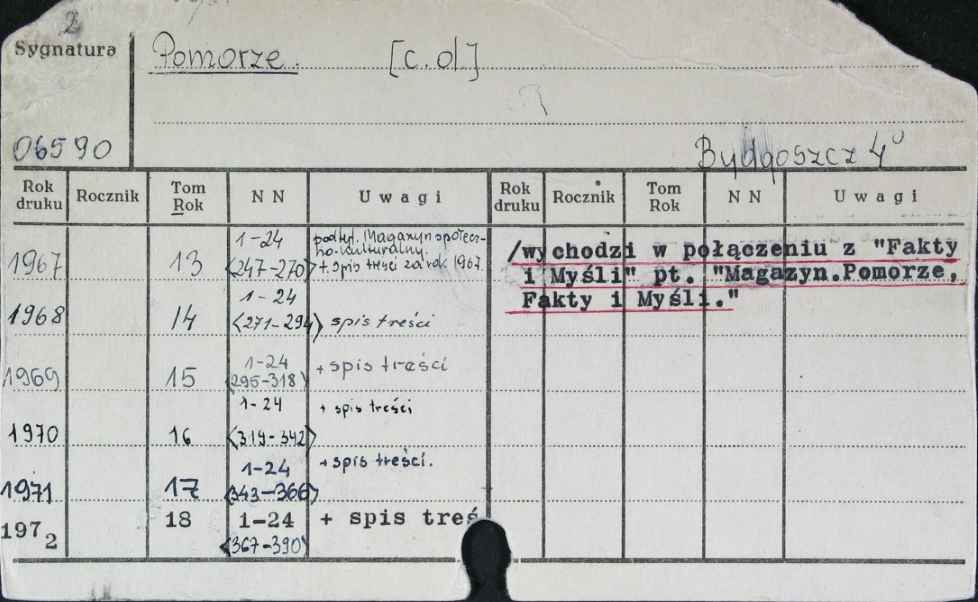 2
Sygnatura
Pomorze. [c.d]
06590
Bydgoszcz 4°
Rok druku Rocznik Tom Rok N N Uwagi Rok druku Rocznik Tom Rok N N Uwagi
1967 13 1-24 <247-270> podtyt. Magazyn społecz-
no-kulturalny.
+ spis treści za rok 1967.
1968 14 1-24 <271-294> spis treści
1969 15 1-24 <295-318> + spis treści
1970 16 1-24 <319-342> + spis treści
1971 17 1-24 <343-366> + spis treści.
1972 18 1-24 <367-390> + spis treś
/wychodzi w połączeniu z "Fakty
i Myśli" pt. "Magazyn.Pomorze,
Fakty i Myśli."